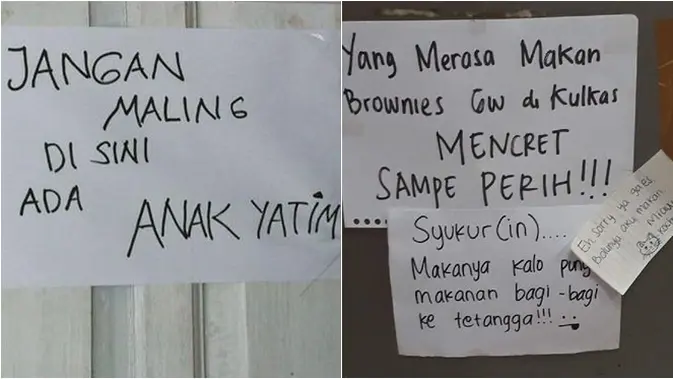 JANGAN
MALING
DI SINI
ADA
ANAK YATIM
Yang Merasa Makan
Brownies Gw di Kulkas
MENCRET
SAMPE PERIH!!!
Syukur(in)....
Makanya kalo puny
makanan bagi-bagi
ke tetangga!!!
Eh sorry ya gaes,
aku makan